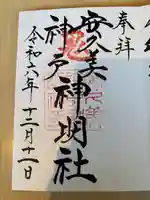 奉拝
安久美
神戸神明社
令和六年十二月十一日